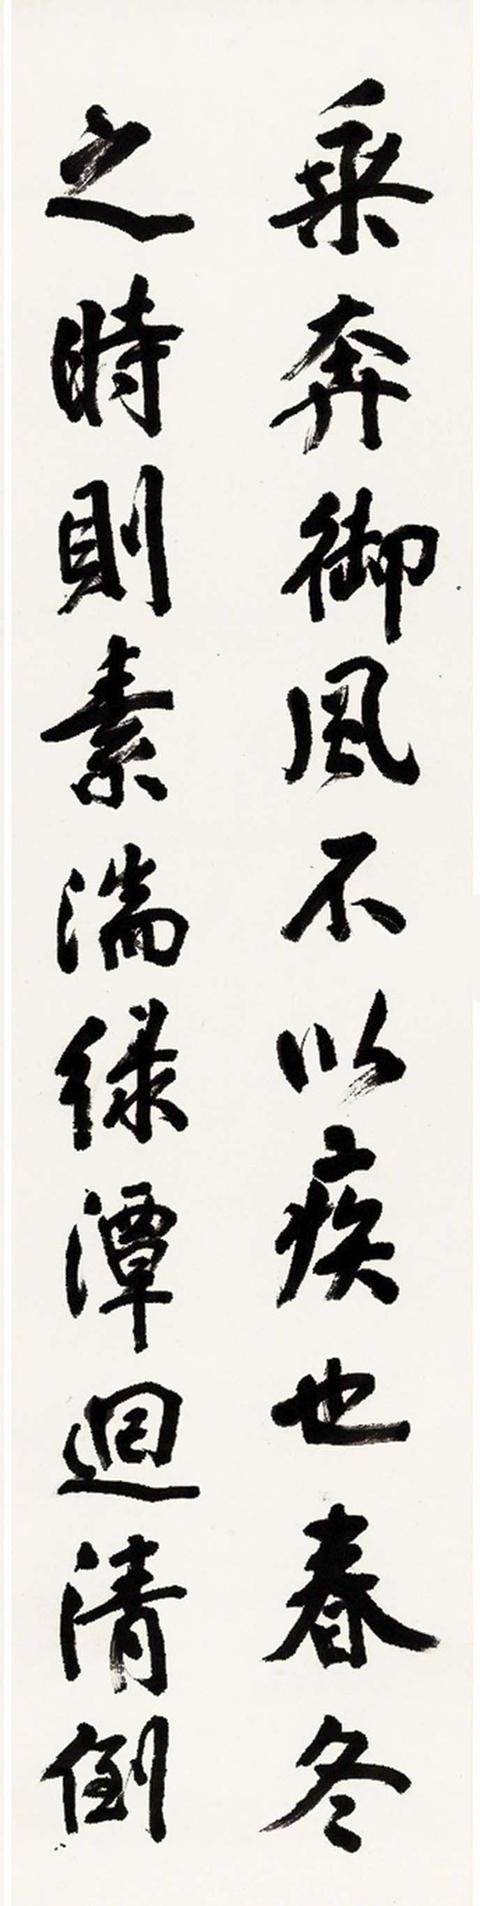 乘奔御風不以疾也春冬
之時則素湍綠潭迴清倒